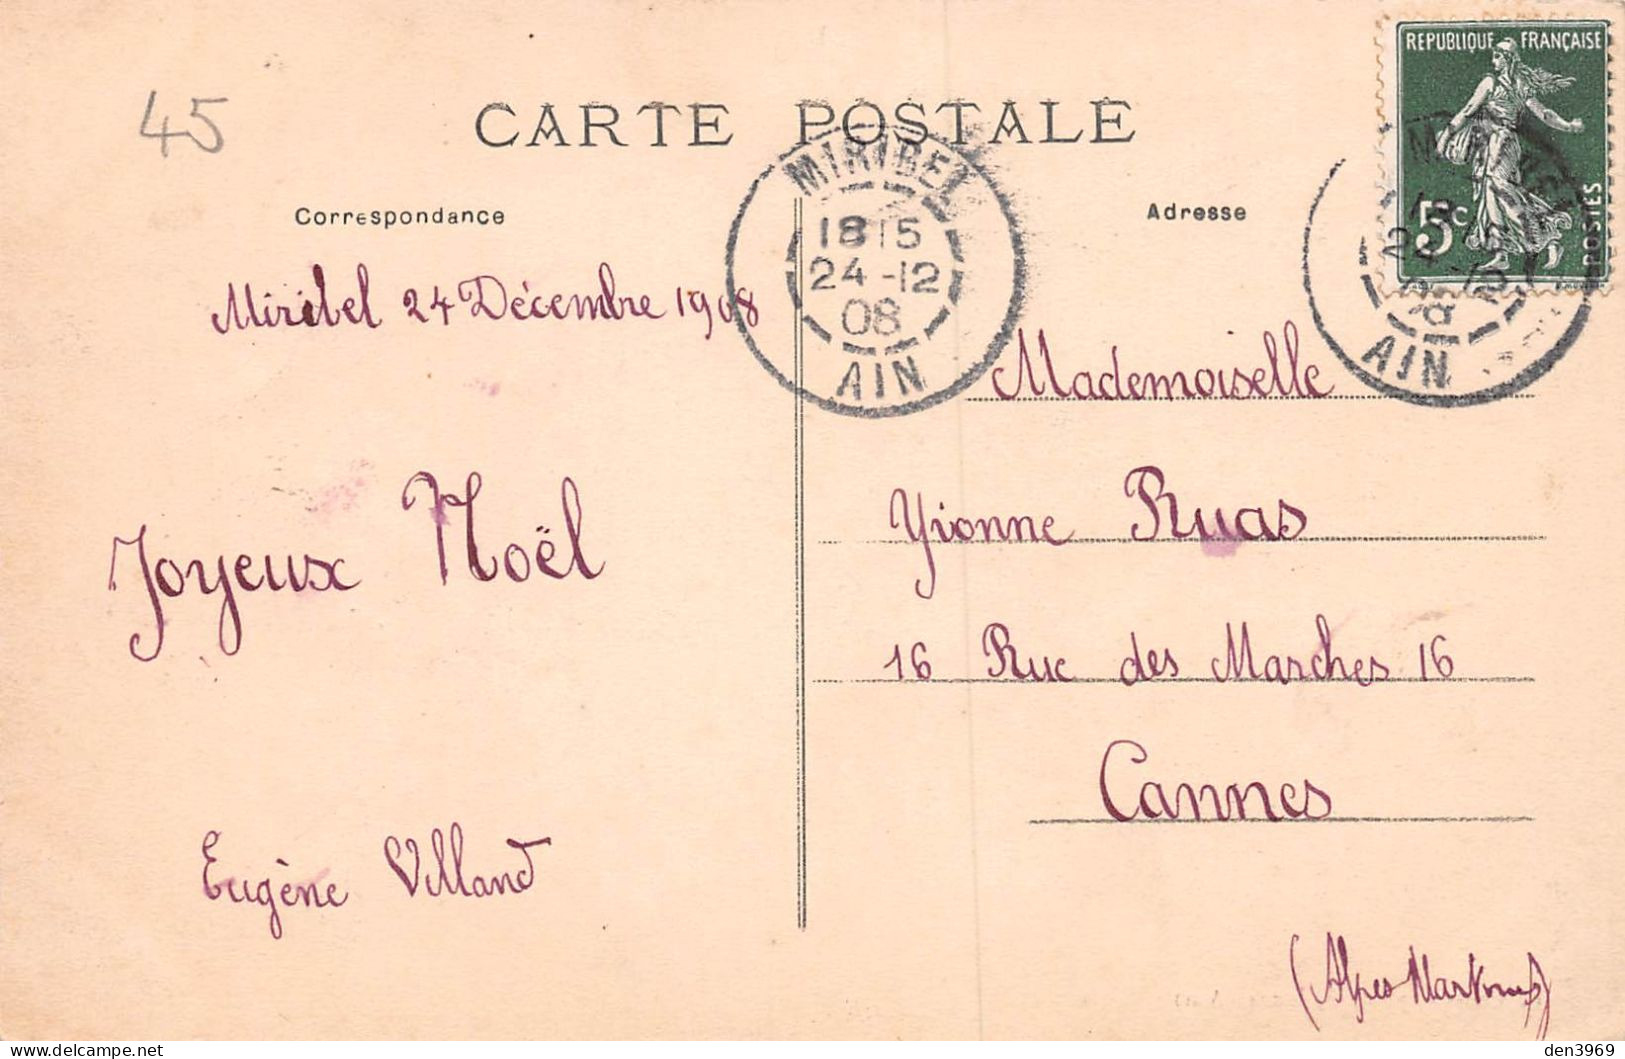 45
CARTE POSTALE
REPUBLIQUE FRANÇAISE
5c
POSTES
Correspondance
Adresse
MIRIBEL
18 15
24-12
08
AIN
24 -12
AIN
Miribel 24 Décembre 1908
Joyeux Noël
Eugène Villand
Mademoiselle
Yvonne Ruas
16 Rue des Marches 16
Cannes
(Alpes Maritimes)
den3969